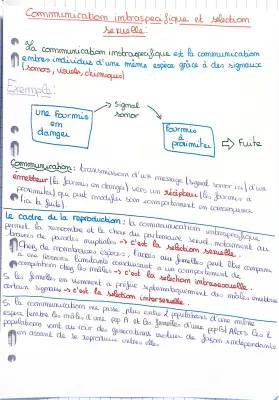 Communication intraspécifique et sélection
sexuelle :
La communication intraspécifique est la communication
entres individus d'une même espèce grâce à des signaux
(sonors, visuels, chimiques)
Exemple :
une fourmis
en
danger
signal
sonor
fourmis
à
proximitée
Fuite
Communication : transmission d'un message (signal sonor ici) d'un
émetteur (la fourmis en danger) vers un récepteur (les fourmis à
proximitée) qui peut modifier son comportement en conséquence
(ici la fuite)
Le cadre de la reproduction : la communication intraspécifique
permet la rencontre et le choix du partenaire sexuel, notamment au
travers de parades nuptiales → c'est la sélection sexuelle.
Chez de nombreuses espèces, l'accès aux femelles peut être comparé
à une ressource limitante conduisant à un comportement de
compétition chez les mâles → c'est la sélection intrasexuelle.
Si les femelles en viennent à préférer systématiquement des mâles émetteurs
certains signaux → c'est la sélection intersexuelle.
Si la communication ne passe plus entre 2 populations d'une même
espèce (entre les mâles d'une pop A et les femelles d'une pop B) Alors les 2
populations vont au cours des générations évoluer de façon indépendante
en cessant de se reproduire entre elles